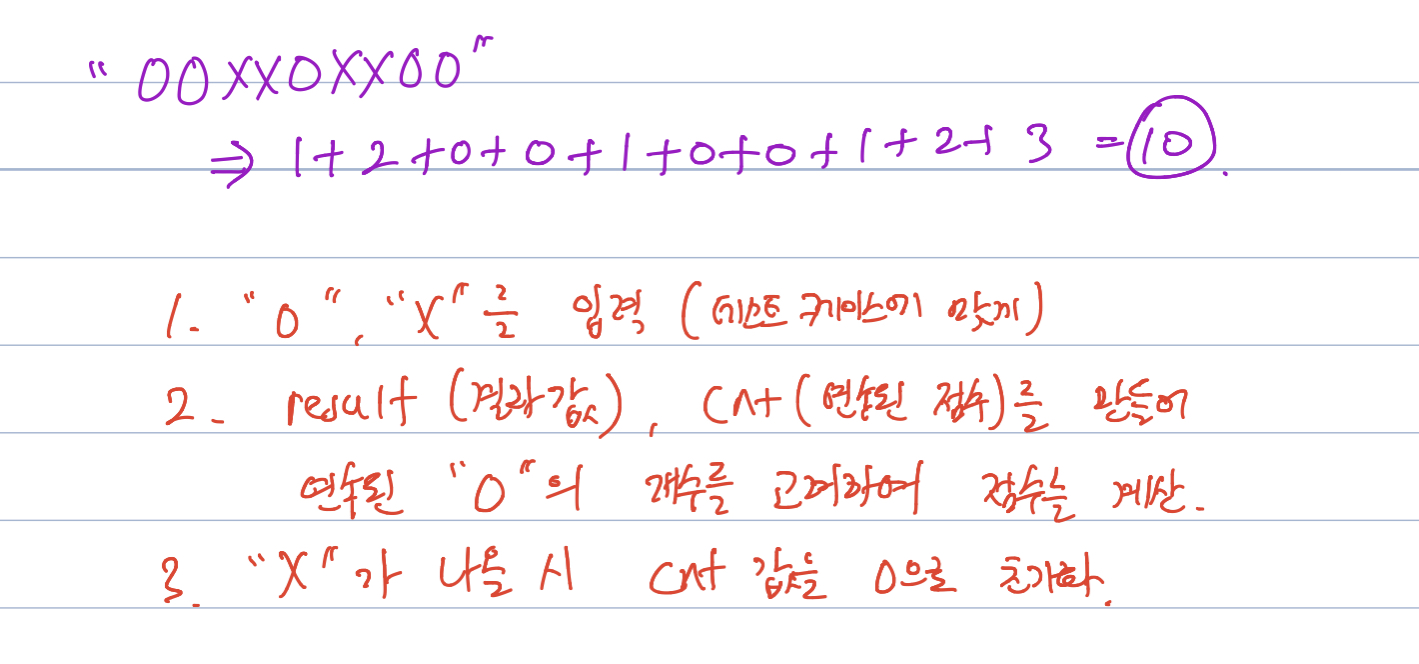 "OOXXOXXOO"
⇒ 1+2+0+0+1+0+0+1+2+3 = 10.
1. "O", "X"를 입력 (테스트 케이스에 맞게)
2. result (결과값), cnt (연속된 점수)를 만들어
연속된 "O"의 개수를 고려하여 점수를 계산.
3. "X"가 나올 시 cnt 값을 0으로 초기화.